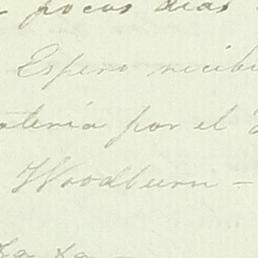 pocos dias
Espero recibi
ateria por el
Woodburn -